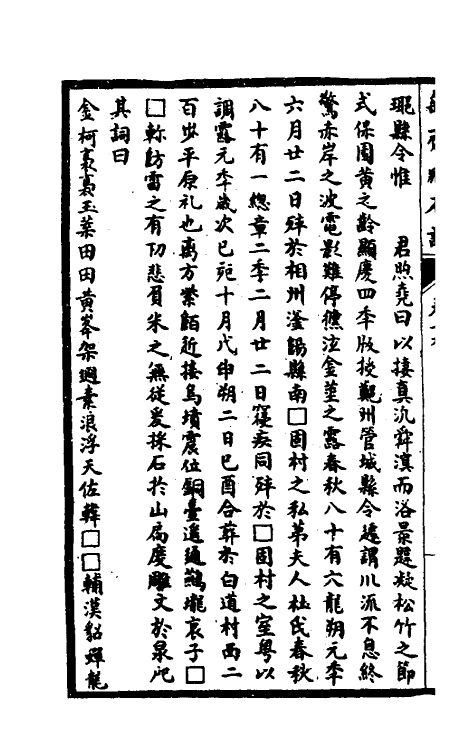 琨縣令惟　君煦堯日以摟真汎舜濵而洛景題凝松竹之節
式保園黄之齡顯慶四季版授鄭州管城縣令遽謂川派不息終
驚赤岸之波電影難停㦗泣金莖之露春秋八十有六龍朔元季
六月廿二日殫於相州滏陽縣南□固村之私第夫人杜氏春秋
八十有一總章二季二月廿二日寢疾同殫於□固村之室粤以
調露元季歲次己䣭十月戊申朔二日己酉合葬於白道村西二
百步平原礼也离方縈䣭近接烏墳震位銅臺遥通鶴壠哀子□
□軫訪雷之有切悲負米之無從爰採石於山扃慶雕文於泉戺
其詞曰
金柯裛裛玉葉田田黄峯架迥素浪浮天佐韓□□輔漢貂蟬龍